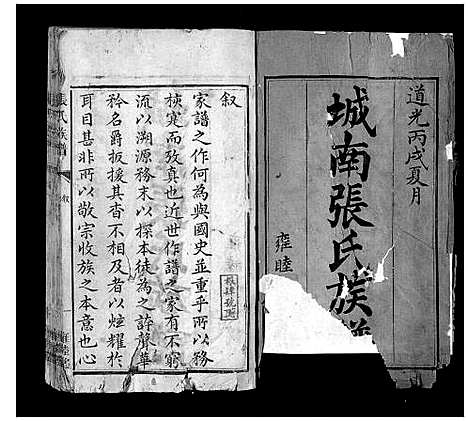 道光丙戌夏月
城南張氏族譜
雍睦
叙
家譜之作何為與國史並重乎所以務
核寔而攷真也近世作譜之家有不窮
流以溯源務末以探本徒為之誇聲華
矜名爵扳援其杳不相及者以炫耀於
耳目甚非所以敬宗收族之本意也心
張氏族譜
叙